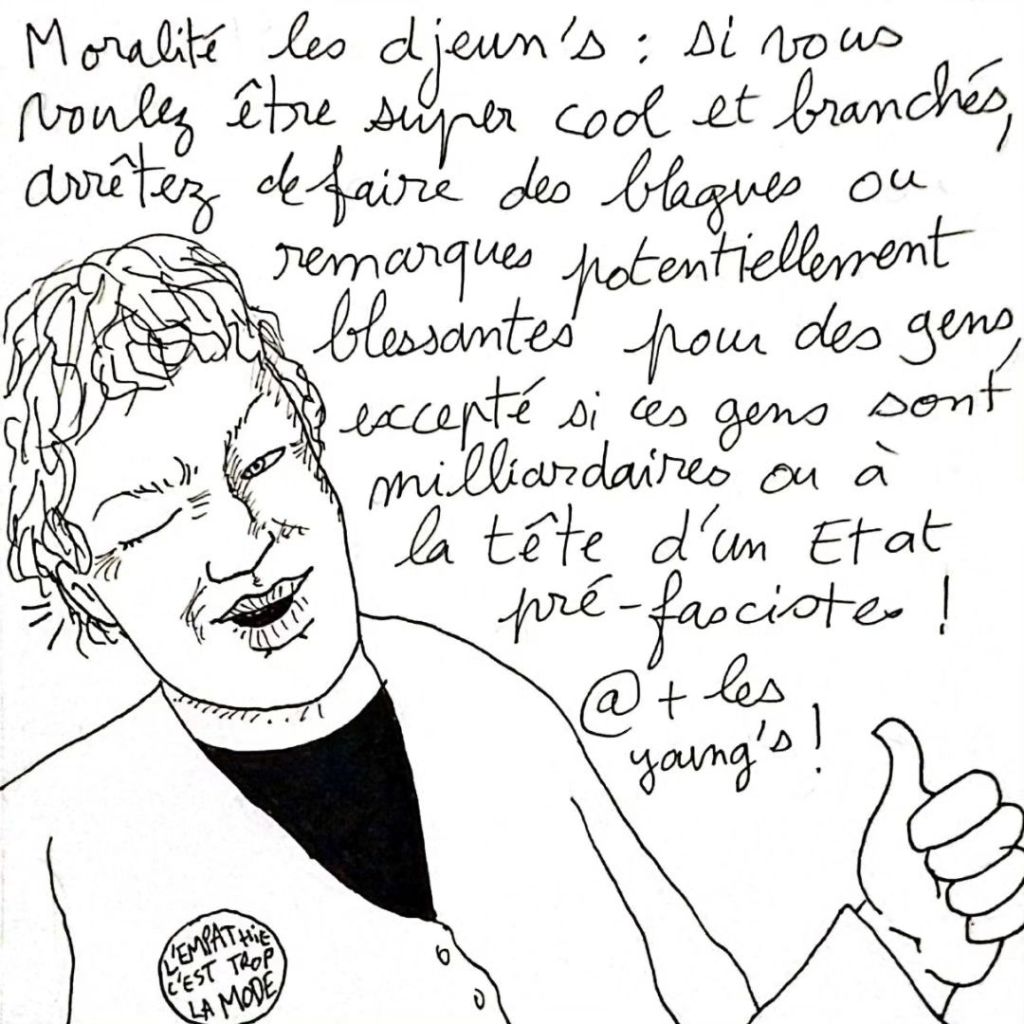 Moralité les djeun's : si vous
voulez être super cool et branchés,
arrêtez de faire des blagues ou
remarques potentiellement
blessantes pour des gens,
excepté si ces gens sont
milliardaires ou à
la tête d'un Etat
pré-fasciste !
@+ les
young's !
L'EMPATHIE
C'EST TROP
LA MODE